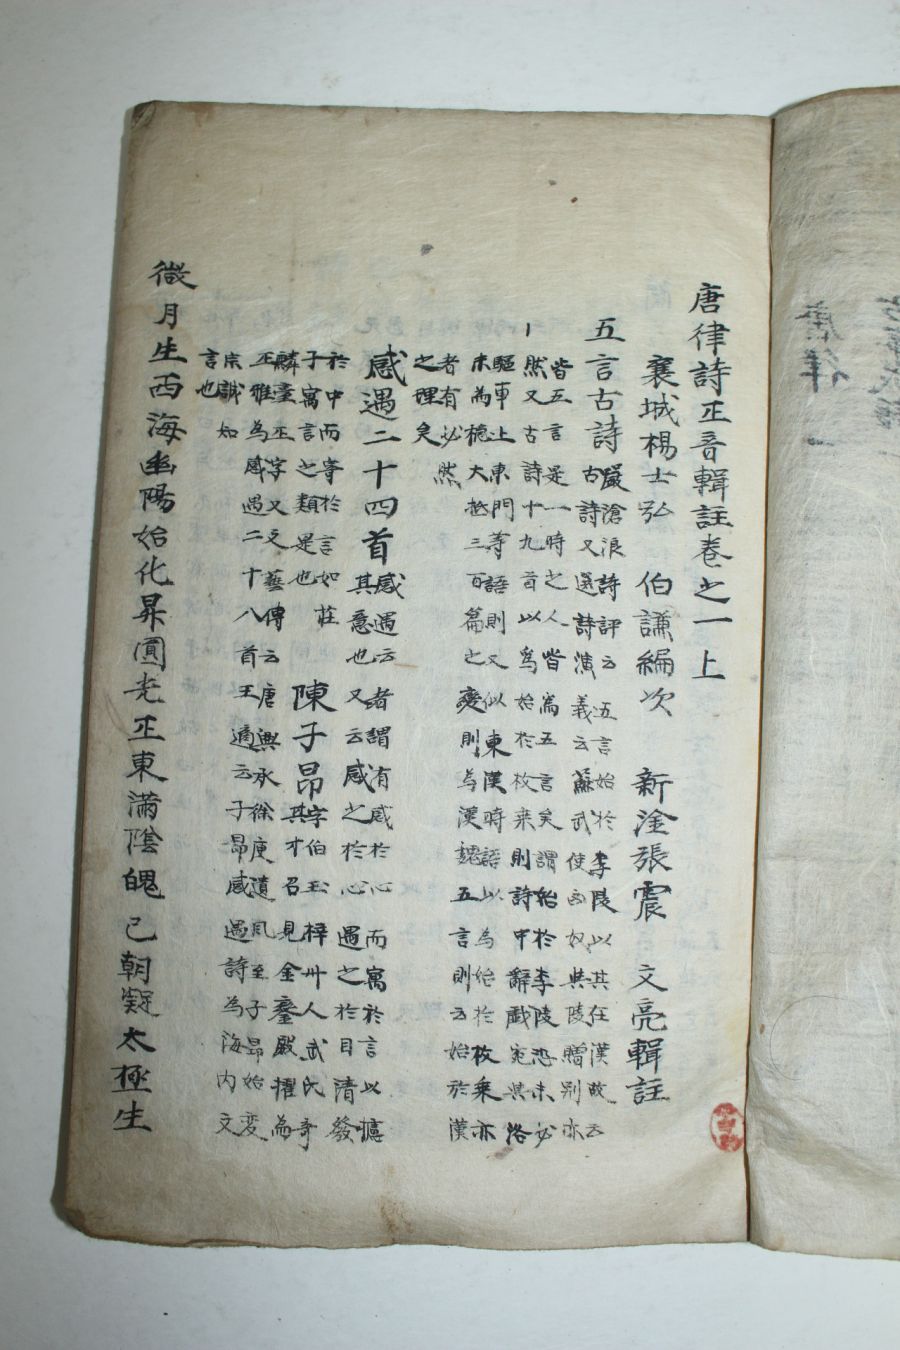 唐律 一
唐律詩正音輯註卷之一上
襄城楊士弘 伯謙編次 新淦張震 文亮輯註
五言古詩 嚴滄浪詩評云五言始於李陵以其在漢故云
古詩又選詩演義云蘇武使匈奴與陵贈別亦
皆五言是一時之人皆爲五言矣謂始於李陵恐未必
然又古詩十九首以爲始於枚乘則詩中辭戲宛其洛
驅車上東門等語則又似東漢時語以為始於枚乘亦
未為穩大抵三百篇之變則為漢魏五言則云始於漢
者有必然
之理矣
感遇二十四首 感遇云者謂有感於心而寓於言以攄
其意也又云感之於心遇之於目情發
於中而寄於言如莊
子寓言之類是也
陳子昂 字伯玉梓州人武氏奇
其才召見金鑾殿擢為
麟臺正字又文藝傳云唐興承徐庾遺風至子昂始变
正雅為感遇二十八首王適云子昂感遇詩為海內文
宗誠如
言也
微月生西海幽陽始化昇圓光正東滿陰魄已朝凝太極生